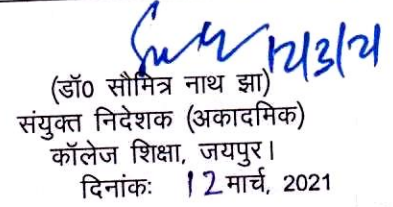 12/3/21
(डॉ0 सौमित्र नाथ झा)
संयुक्त निदेशक (अकादमिक)
कॉलेज शिक्षा, जयपुर।
दिनांकः 12 मार्च, 2021